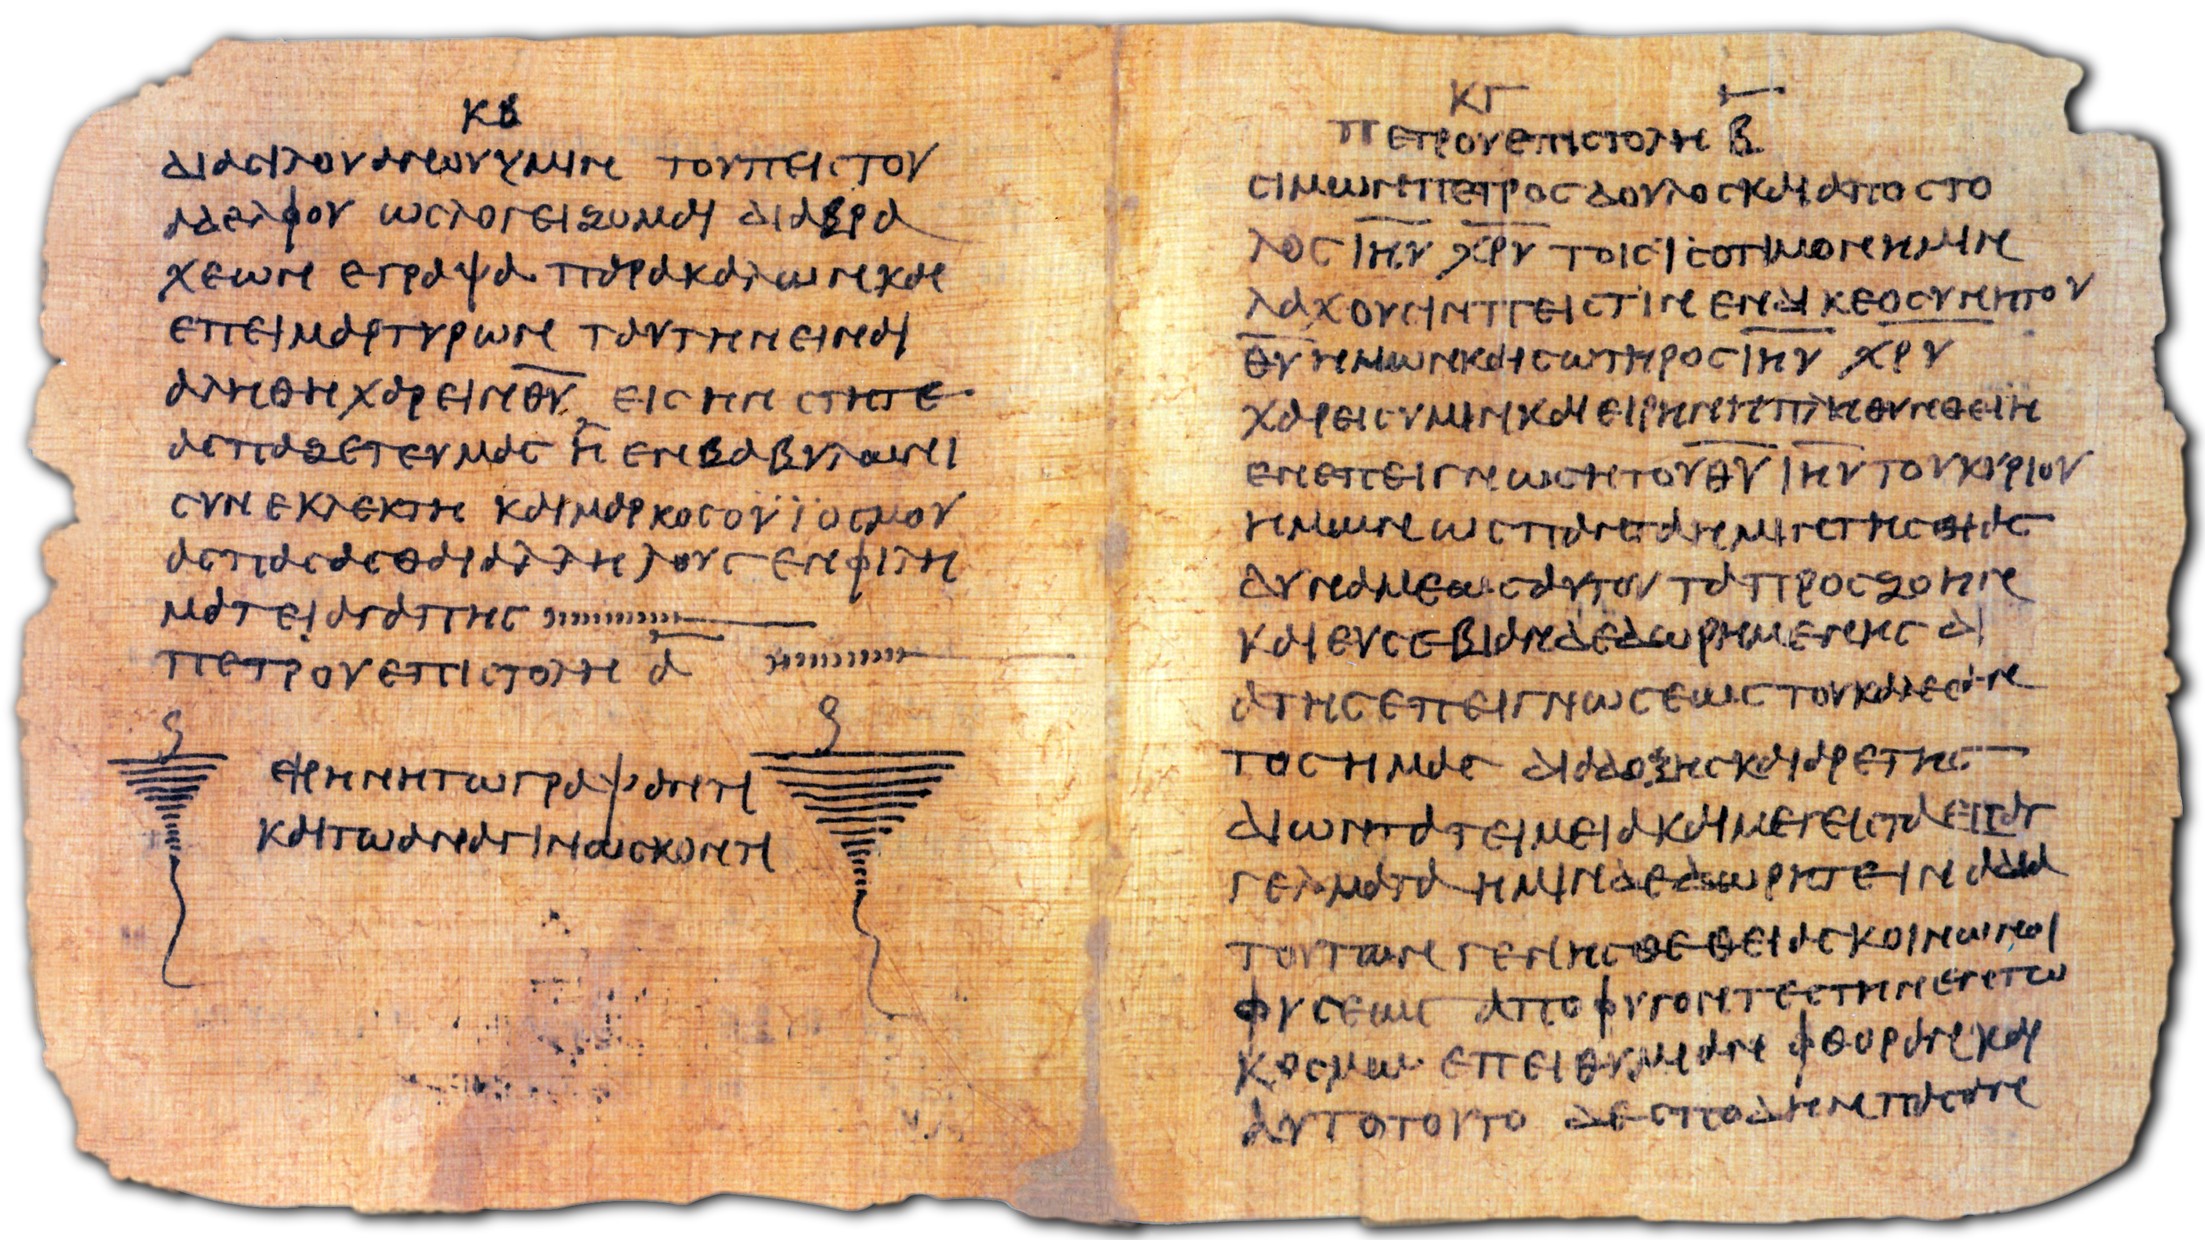 ΚΒ
ΔΙΑΣΙΛΟΥΑΝΩΥΥΜΙΝ ΤΟΥΠΕΙΣΤΟΥ
ΑΔΕΛΦΟΥ ΩΣΛΟΓΕΙΖΟΜΑΙ ΔΙΑΒΡΑ
ΧΕΩΝ ΕΓΡΑΨΑ ΠΑΡΑΚΑΛΩΝΚΑΙ
ΕΠΕΙΜΑΡΤΥΡΩΝ ΤΑΥΤΗΝΕΙΝΑΙ
ΑΛΗΘΗΧΑΡΕΙΝΘΥ̅ ΕΙΣΗΝ ΣΤΗΤΕ
ΑΣΠΑΖΕΤΕΥΜΑΣ Η ΕΝΒΑΒΥΛΩΝΙ
ΣΥΝΕΚΛΕΚΤΗ ΚΑΙΜΑΡΚΟΣΟΥΪΟΣΜΟΥ
ΑΣΠΑΣΑΣΘΑΙΑΛΛΗΛΟΥΣ ΕΝΦΙΛΗ
ΜΑΤΕΙΑΓΑΠΗΣ
ΠΕΤΡΟΥΕΠΙΣΤΟΛΗ Α̅
ΕΙΡΗΝΗΤΩΓΡΑΨΑΝΤΙ
ΚΑΙΤΩΑΝΑΓΙΝΩΣΚΟΝΤΙ
ΚΓ
ΠΕΤΡΟΥΕΠΙΣΤΟΛΗ Β
ΣΙΜΩΝΠΕΤΡΟΣΔΟΥΛΟΣΚΑΙΑΠΟΣΤΟ
ΛΟΣΙΗΥ̅ ΧΡΥ̅ ΤΟΙΣΙΣΟΤΙΜΟΝΗΜΙΝ
ΛΑΧΟΥΣΙΝΠΕΙΣΤΙΝ ΕΝΔΙΚΕΟΣΥΝΗΤΟΥ
ΘΥ̅ΗΜΩΝΚΑΙΣΩΤΗΡΟΣΙΗΥ̅ ΧΡΥ̅
ΧΑΡΕΙΣΥΜΙΝΚΑΙΕΙΡΗΝΗΠΛΗΘΥΝΘΕΙΗ
ΕΝΕΠΕΙΓΝΩΣΗΤΟΥΘΥ̅ΙΗΥ̅ΤΟΥΚΥΡΙΟΥ
ΗΜΩΝ ΩΣΠΑΝΤΑΗΜΙΝΤΗΣΘΙΑΣ
ΔΥΝΑΜΕΩΣΑΥΤΟΥ ΤΑΠΡΟΣΖΟΗΝ
ΚΑΙΕΥΣΕΒΙΑΝΔΕΔΩΡΗΜΕΝΗΣ ΔΙ
ΑΤΗΣΕΠΕΙΓΝΩΣΕΩΣΤΟΥΚΑΛΕΣΑΝ
ΤΟΣΗΜΑΣ ΔΙΑΔΟΞΗΣΚΑΙΑΡΕΤΗΣ
ΔΙΩΝΤΑΤΕΙΜΕΙΑΚΑΙΜΕΓΕΙΣΤΑΕΠΑΓ
ΓΕΛΜΑΤΑ ΗΜΙΝΔΕΔΩΡΗΤΕΙΝΑΔΙΑ
ΤΟΥΤΩΝ ΓΕΝΗΣΘΕΘΕΙΑΣΚΟΙΝΩΝΟΙ
ΦΥΣΕΩΣ ΑΠΟΦΥΓΟΝΤΕΣΤΗΝΕΝΤΩ
ΚΟΣΜΩ ΕΠΕΙΘΥΜΙΑΝ ΦΘΟΡΑΝΚΑΙ
ΑΥΤΟΤΟΥΤΟ ΔΕΣΠΟΔΗΝΠΑΣΑΝ